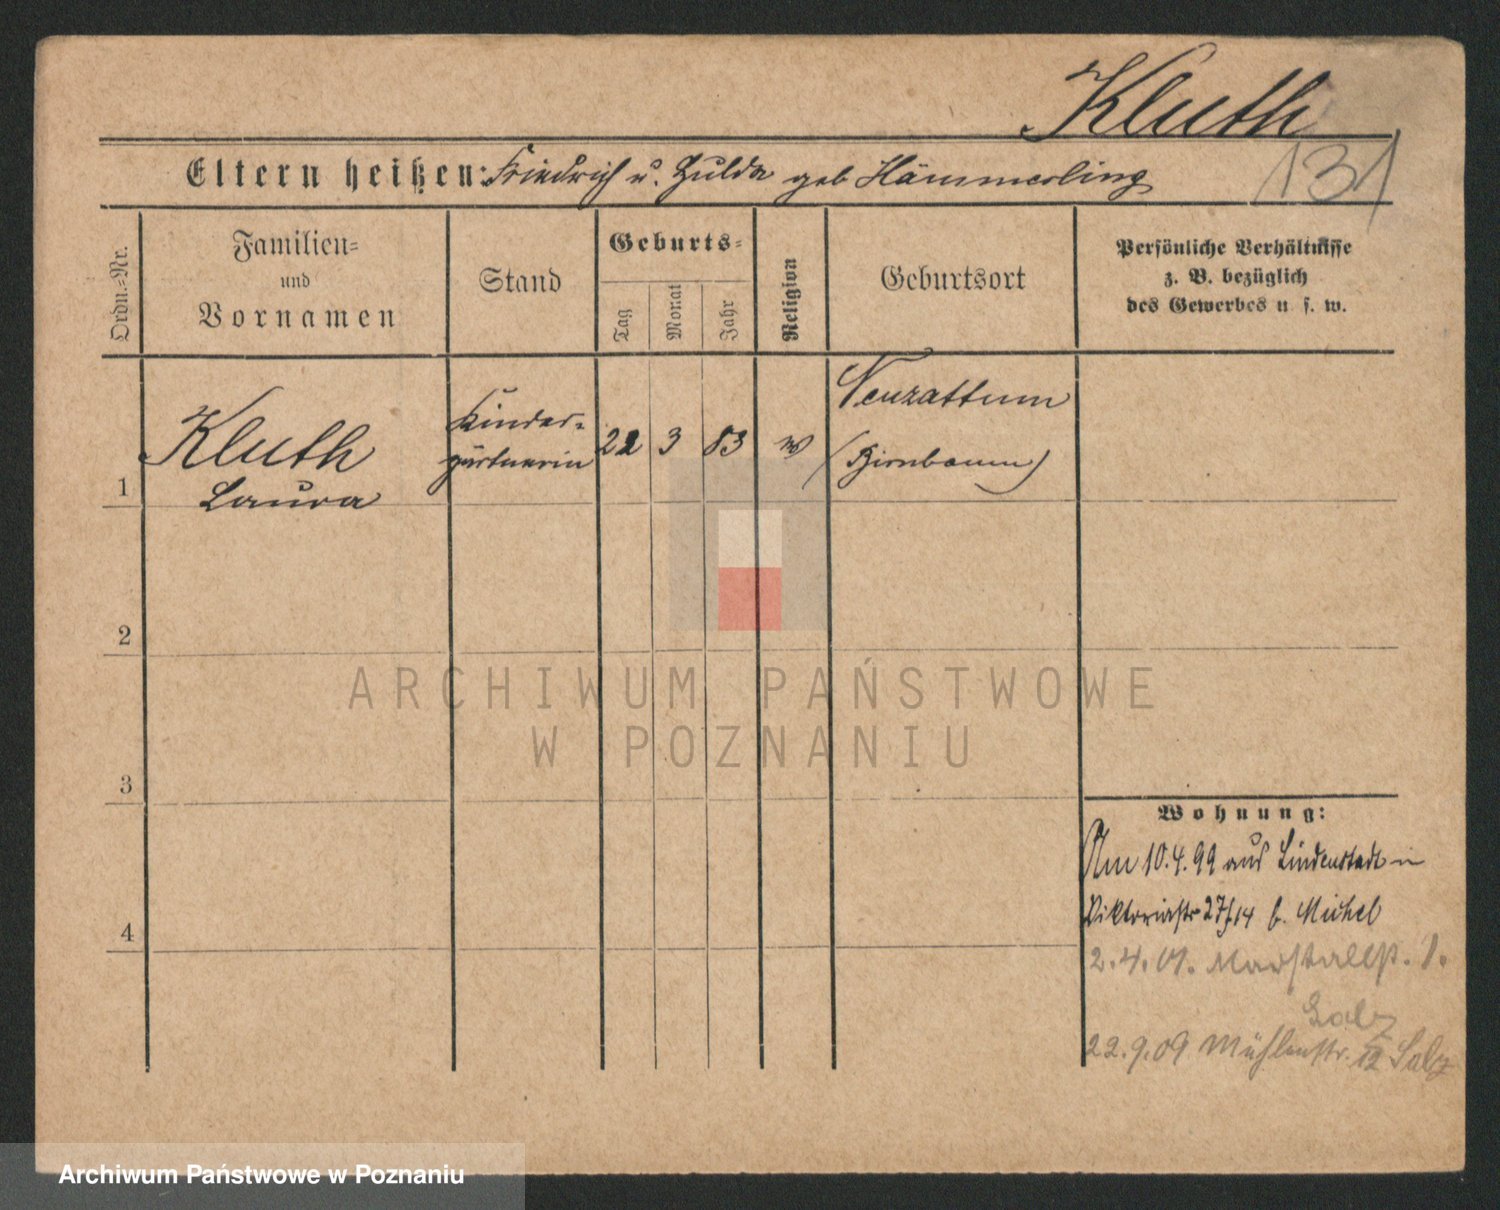 Kluth
Eltern heißen: Friedrich u. Hulda geb Hämmerling
131
Ordn.=Nr.
Familien=
und
Vornamen
Stand
Geburts=
Tag
Monat
Jahr
Religion
Geburtsort
Persönliche Verhältnisse
z. B. bezüglich
des Gewerbes u. s. w.
1
Kluth
Laura
Kinder=
gärtnerin
22
3
83
Neuzattum
(Birnbaum)
2
3
4
ARCHIWUM PAŃSTWOWE
W POZNANIU
Wohnung:
Am 10.4.99 aus Lindenstadt in
Viktoriastr 27/14 b. Michel
2.4.07. Marstallst.
Salz
22.9.09 Mühlenstr. 12 Salz
Archiwum Państwowe w Poznaniu